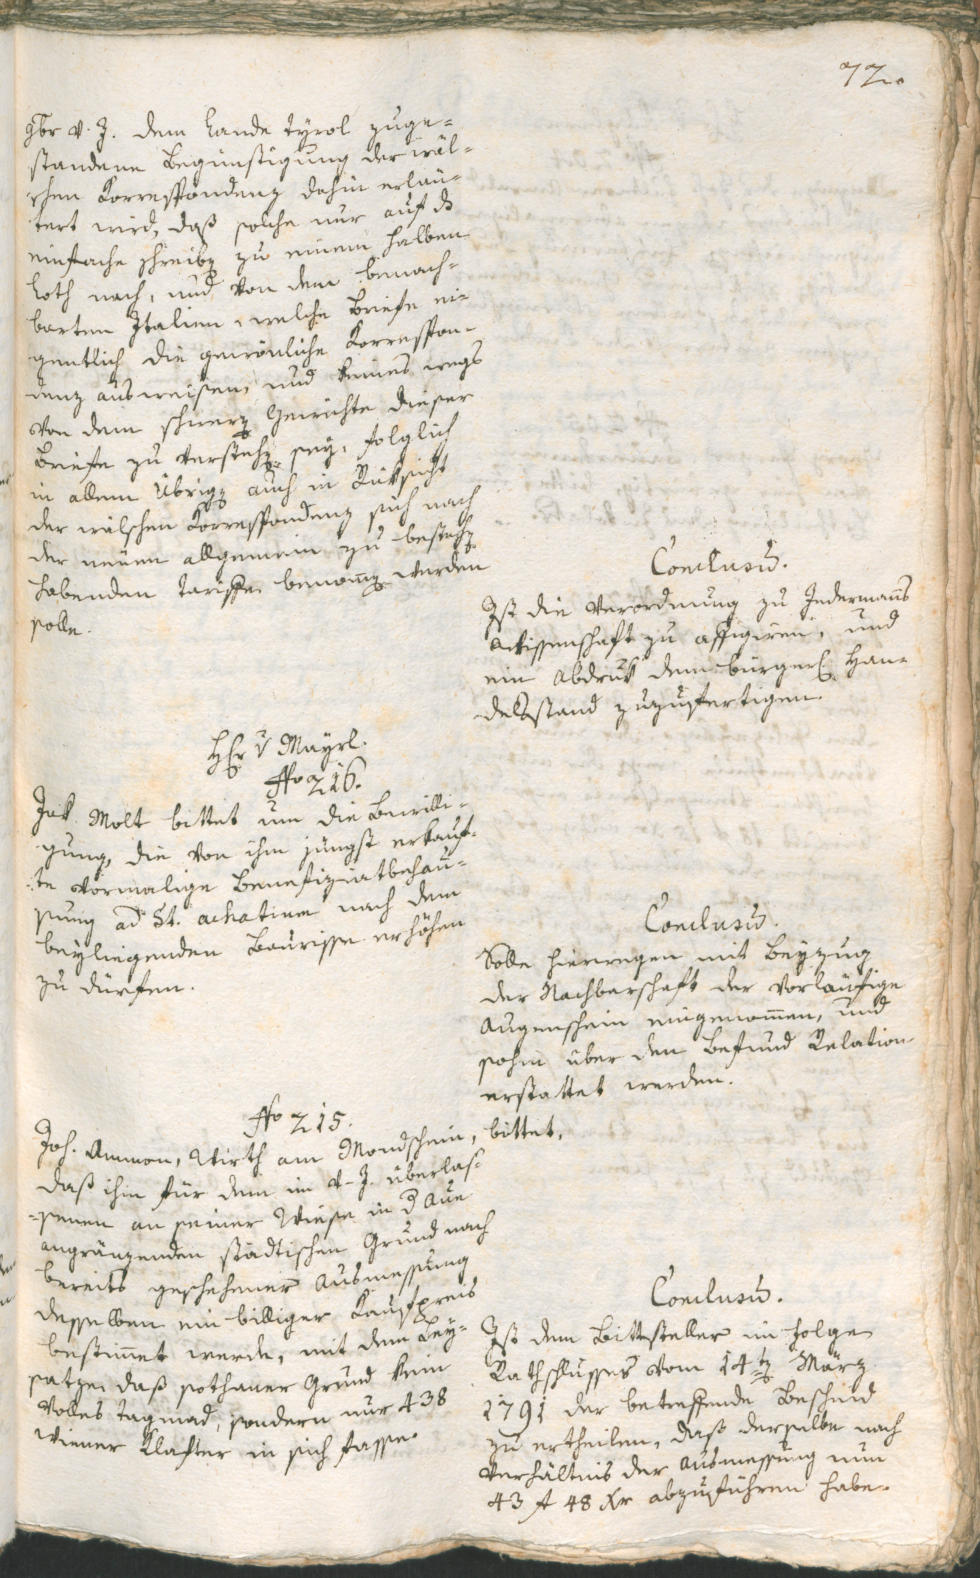 72.
9br v. J. dem Lande Tyrol zuge-
standene Begünstigung der wäl-
schen Korrespondenz dahin erläu-
tert wird, daß solche nur auf d
einfache schreib zu einem halben
Loth nach, und von dem benach-
barten Italien, welche Briefe ei-
gentlich die gewönliche Korrespon-
denz ausweisen, und keines wegs
von dem schwerz Gewichte dieser
Briefe zu verstehz sey, folglich
in allem Übrigz auch in Rüksicht
der wälschen Korrespondenz sich nach
der neuen allgemein zu bestehz
habenden Tariffe benomz werden
solle.
Conclusū.
Ist die Verordnung zu Jedermañs
Wissenschaft zu affigiren, und
ein Abdruk dem bürgerl Han-
delsstand zuzufertigen.
Hr v Mayrl.
No 216.
Jak. Molt bittet um die Bewilli-
gung, die von ihm jüngst erkauf-
te vormalige Benefiziatbehau-
sung ad St. achatium nach dem
beyliegenden Baurisse erhöhen
zu dürfen.
Conclusū.
Solle hierwegen mit Beyzug
der Nachbarschaft der vorläufige
Augenschein eingenom̄en, und
sohin über den Befund Relation
erstattet werden.
No 215.
Joh. Ammon, Wirth am Mondschein, bittet,
daß ihm für dem im v. J. überlas-
senen an seiner Wiese in d Aue
angränzenden städtischen Grund nach
bereits geschehener Ausmessung
desselben ein billiger Kaufpreis
bestim̄et werde, mit dem Bey-
satze, daß sothaner Grund kein
volles Tagmad, sondern nur 438
Wiener Klafter in sich fasse.
Conclusū.
Ist dem Bittsteller im Folge
Rathschlusses vom 14tz März
1791 der betreffende Bescheid
zu ertheilen, daß derselbe nach
Verhältnis der Ausmessung nun
43 f 48 kr abzuführen habe.